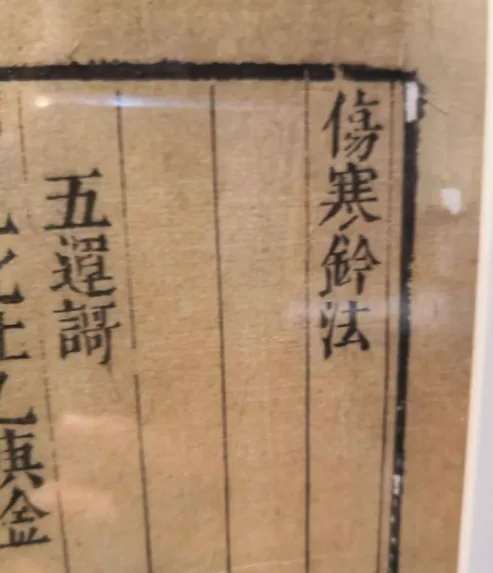 傷寒鈐法
五運謌
化土乙庚金